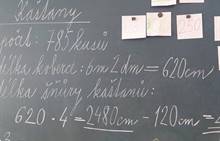 Kaštany
počet: 785 kusů
délka koberce: 6m 2dm = 620cm
délka šňůry kaštanů:
620 · 4 = 2480cm - 120cm =